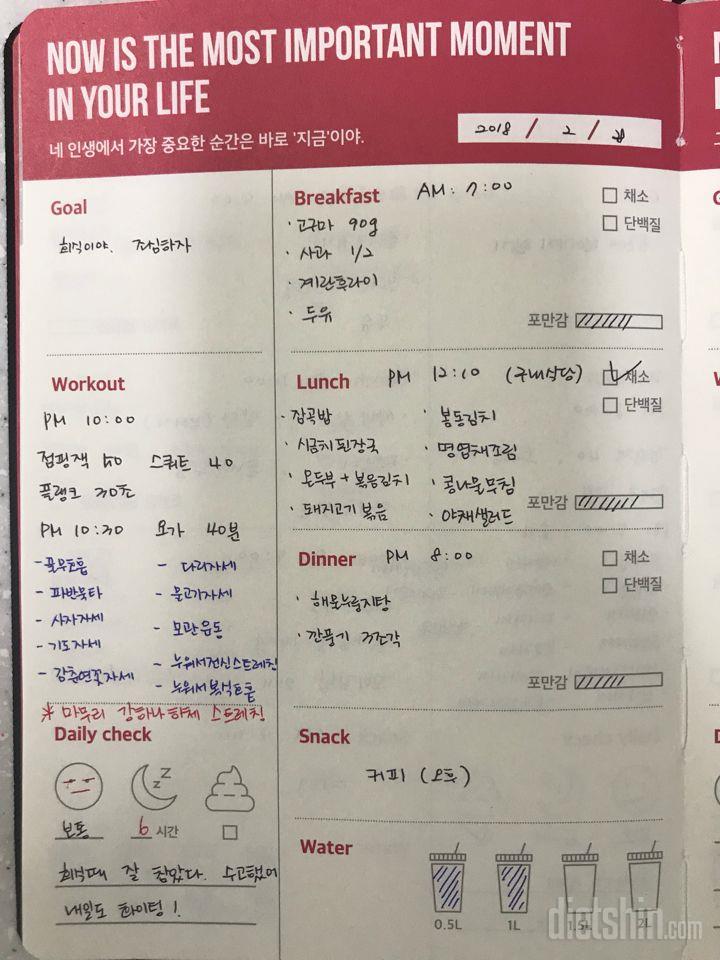 NOW IS THE MOST IMPORTANT MOMENT
IN YOUR LIFE
네 인생에서 가장 중요한 순간은 바로 '지금'이야.
2018 / 2 /
Goal
회식이야. 조심하자
Breakfast AM: 7:00
· 고구마 90g
· 사과 1/2
· 계란후라이
· 두유
채소
단백질
포만감
Workout
PM 10:00
점핑잭 50 스쿼트 40
플랭크 30초
PM 10:30 요가 40분
- 꿀무호흡 - 다리자세
- 파반묵타 - 물고기자세
- 사자자세 - 모관운동
- 기도자세 - 누워서전신스트레칭
- 감춘연꽃자세 - 누워서복식호흡
※ 마무리 강하나 하체 스트레칭
Lunch PM 12:10 (구내식당)
채소
단백질
· 잡곡밥 · 봄동김치
· 시금치된장국 · 명엽채조림
· 온두부 + 볶음김치 · 콩나물무침
· 돼지고기 볶음 · 야채샐러드
포만감
Dinner PM 8:00
채소
단백질
· 해물누룽지탕
· 깐풍기 3조각
포만감
Snack
커피 (오후)
Daily check
보통 6 시간
회식때 잘 참았다. 수고했어
내일도 화이팅!
Water
0.5L 1L 1.5L 2L
dietshin.com